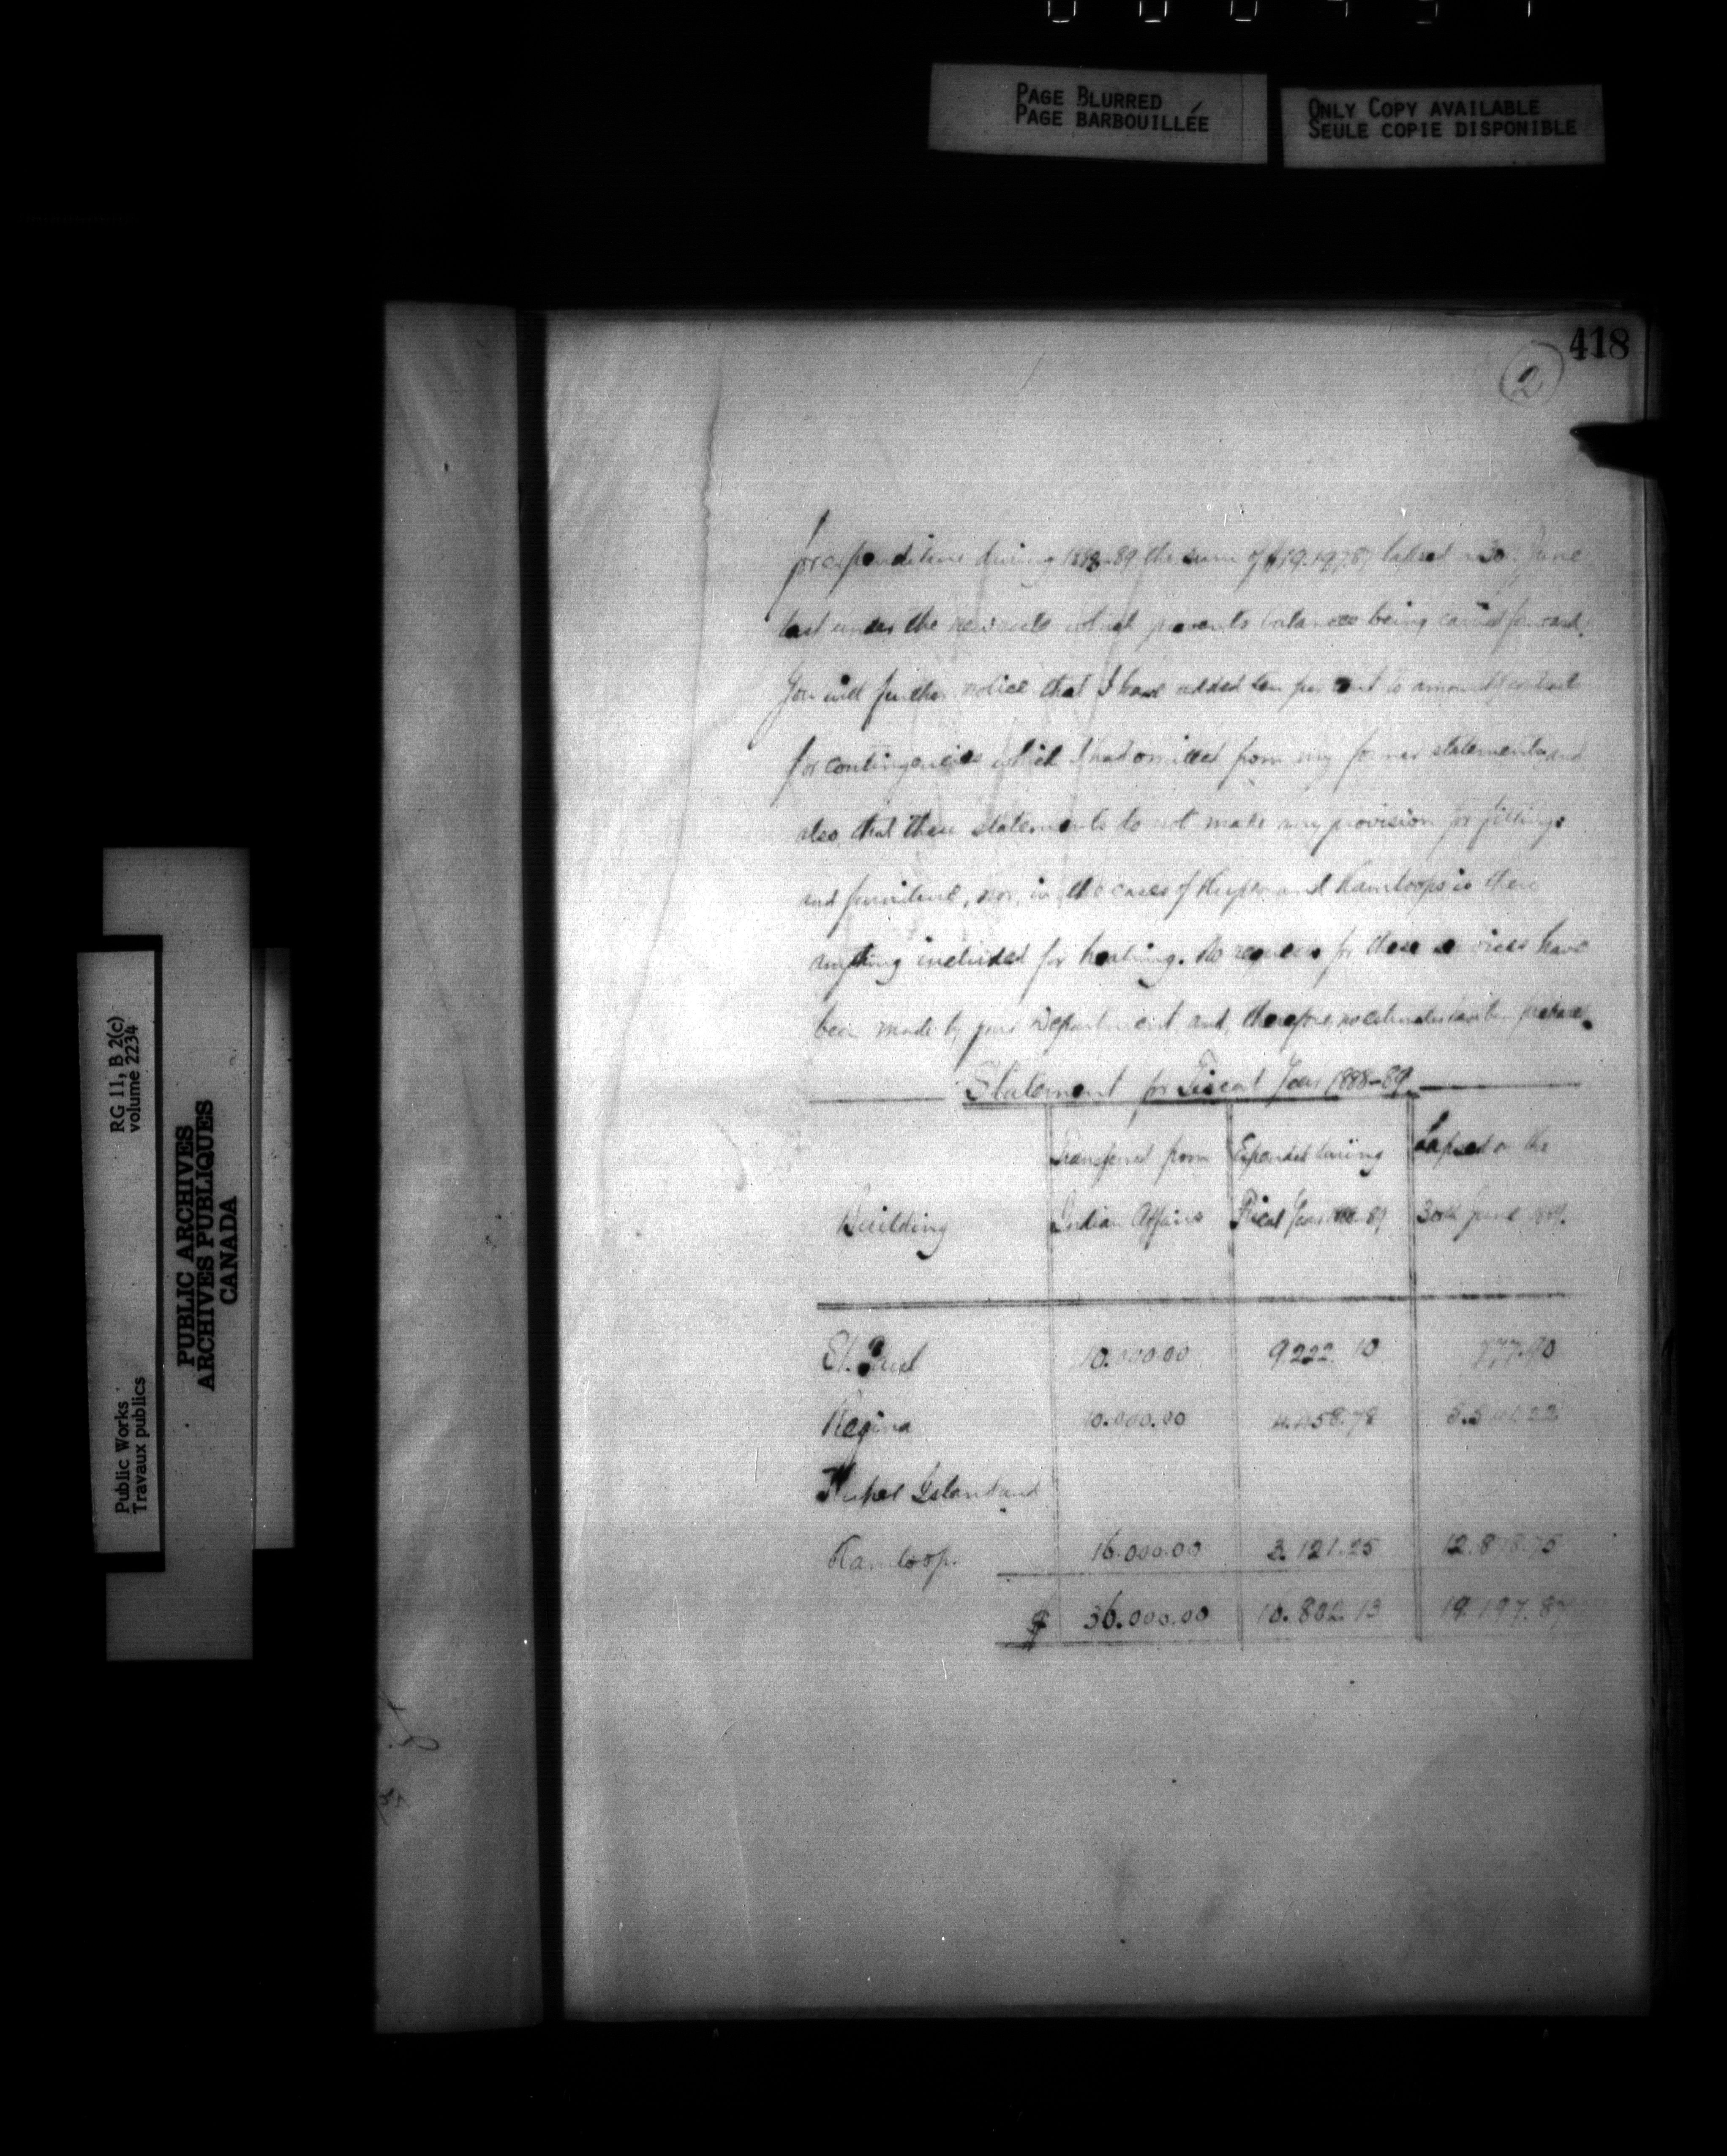 PAGE BLURRED
PAGE BARBOUILLÉE
ONLY COPY AVAILABLE
SEULE COPIE DISPONIBLE
418
2
for expenditure during 1888-89 the sum of $19.197.87 lapsed on 30. June
last under the new rule which prevents balances being carried forward.
You will further notice that I have added ten per cent to amount contract
for contingencies which I had omitted from my former statements and
also that these statements do not make any provision for fittings
and furniture, nor, in the cases of Kuper and Kamloops, is there
anything included for heating. No requests for these services have
been made by your Department and, therefore, no estimates have been prepared.
Statement for Fiscal Year 1888-89
Building
Transferred from Indian Affairs
Expended during Fiscal Year 1888-89
Lapsed on the 30th June 1889.
St. Paul 10.000.00 9.222.10 777.90
Regina 10.000.00 4.458.78 5.541.22
Kuper Island and
Kamloop. 16.000.00 3.121.25 12.878.75
$ 36.000.00 16.802.13 19.197.87
RG 11, B 2(c)
volume 2234
PUBLIC ARCHIVES
ARCHIVES PUBLIQUES
CANADA
Public Works
Travaux publics